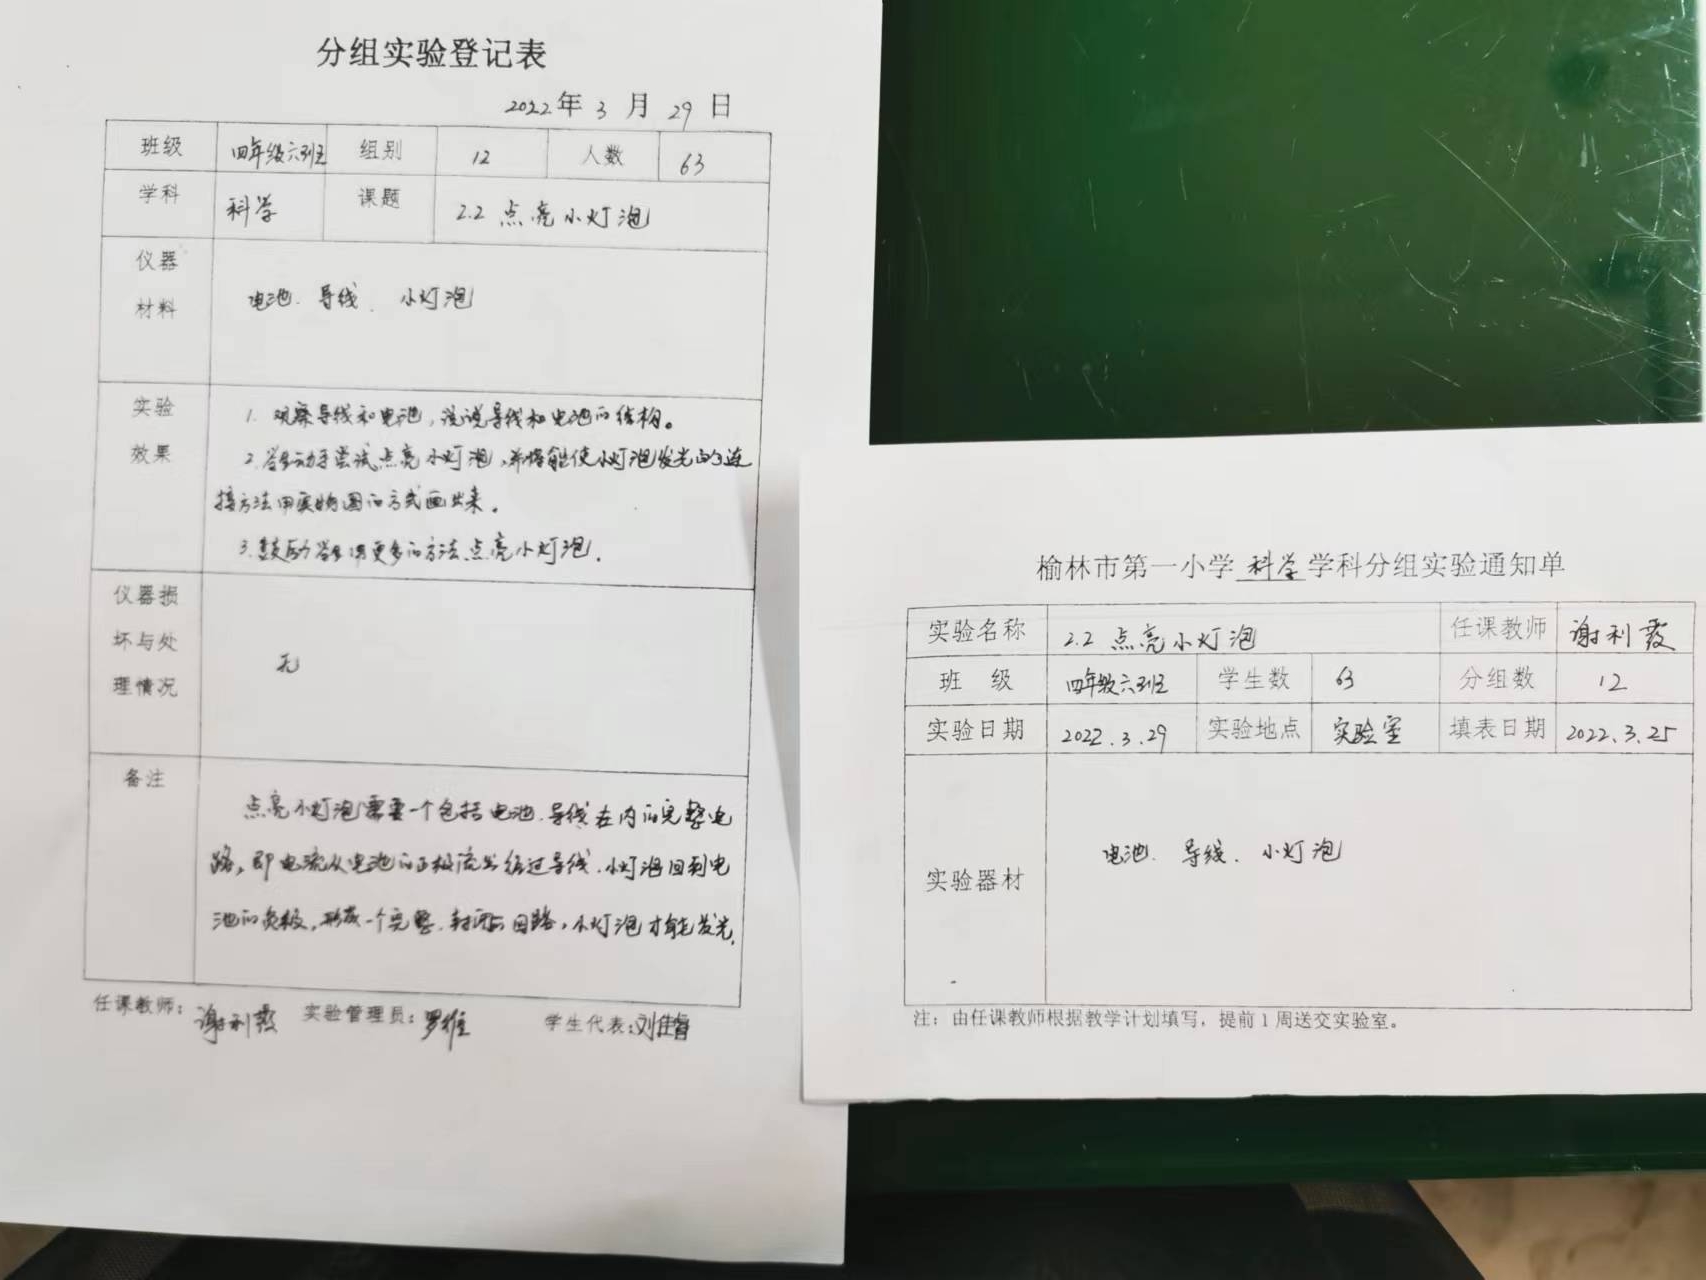 分组实验登记表
2022年 3 月 29 日
班级 四年级六班 组别 12 人数 63
学科 科学 课题 2.2 点亮小灯泡
仪器
材料
电池、导线、小灯泡
实验
效果
1. 观察导线和电池,说说导线和电池的结构。
2. 学生动手尝试点亮小灯泡,并将能使小灯泡发光的连
接方法用实物图的方式画出来。
3. 鼓励学生用更多的方法点亮小灯泡.
仪器损
坏与处
理情况
无
备注
点亮小灯泡需要一个包括电池、导线在内的完整电
路,即电流从电池的正极流出经过导线、小灯泡回到电
池的负极,形成一个完整、封闭的回路,小灯泡才能发光.
任课教师:谢利霞 实验管理员:罗维 学生代表:刘佳睿
榆林市第一小学 科学 学科分组实验通知单
实验名称 2.2 点亮小灯泡 任课教师 谢利霞
班 级 四年级六班 学生数 63 分组数 12
实验日期 2022.3.29 实验地点 实验室 填表日期 2022.3.25
实验器材
电池、导线、小灯泡
注:由任课教师根据教学计划填写,提前1周送交实验室。